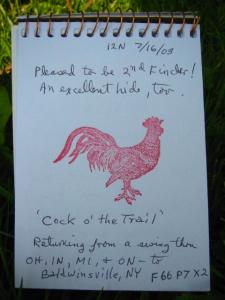 12N 7/16/03
Pleased to be 2nd Finder!
An excellent hide, too.
'Cock o' the Trail'
Returning from a swing thru
OH, IN, MI, & ON - to
Baldwinsville, NY F66 P7 X2